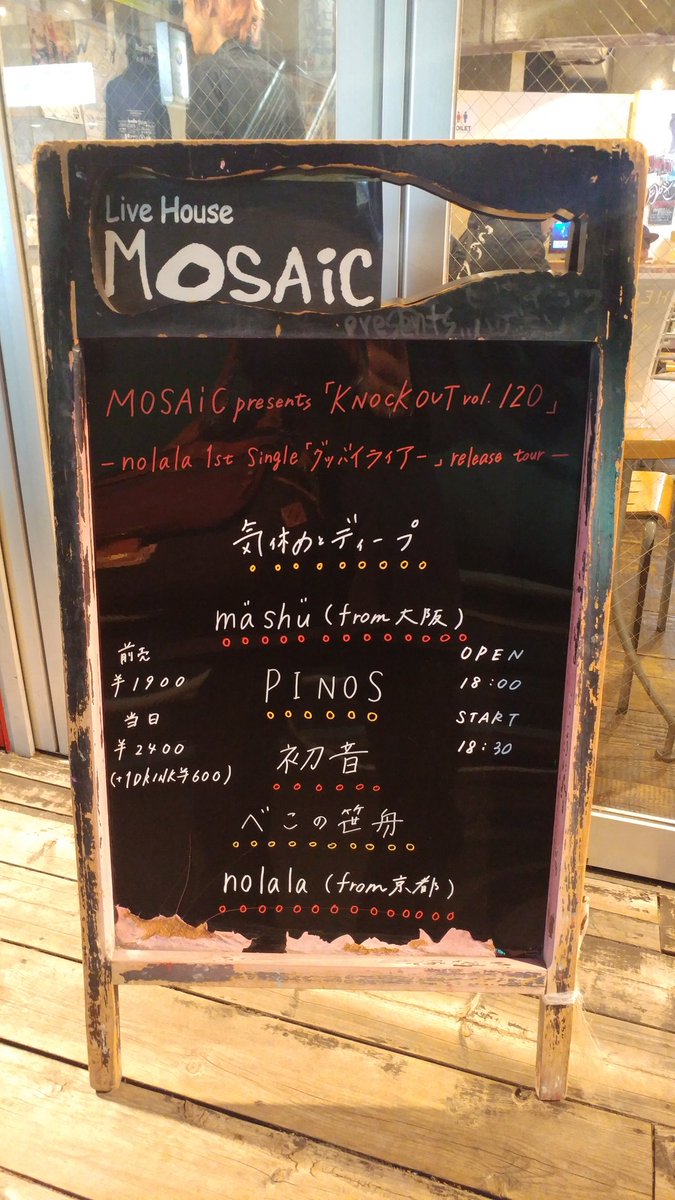 TOILET
Live House
MOSAiC
presents
MOSAiC presents「KNOCKOUT vol. 120」
－nolala 1st Single「グッバイライアー」release tour－
気休めとディープ
mäshü (from大阪)
前売
¥1900
PINOS
OPEN
18:00
当日
¥2400
(+1DRINK¥600)
初音
START
18:30
べこの笹舟
nolala (from京都)